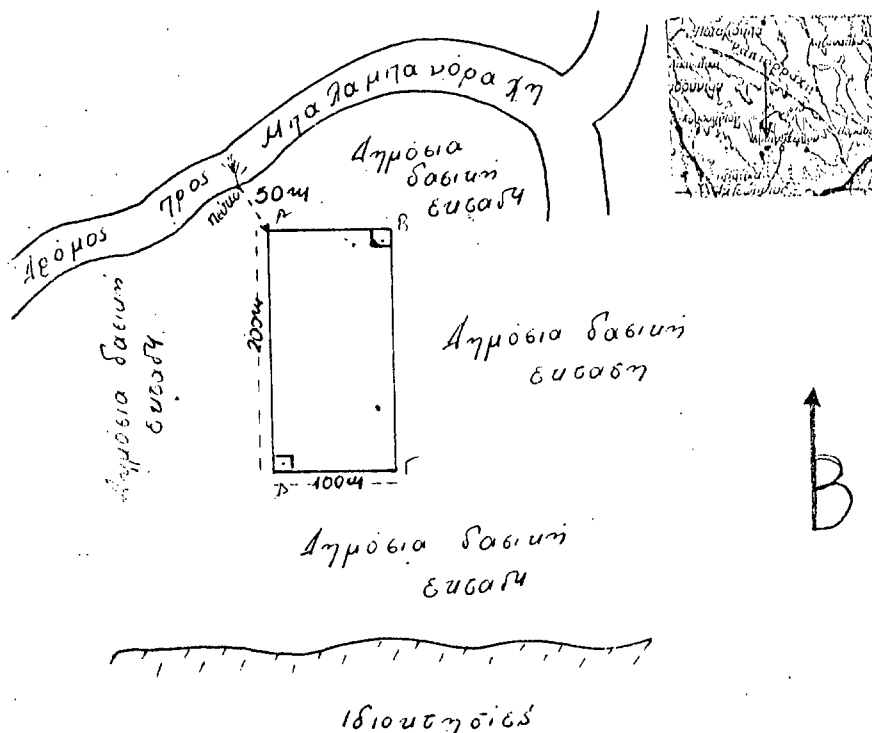 Δρόμος προς Μπαλαμπανόραχη
Πεύκο
50m
Δημόσια
δασική
έκταση
A
B
200m
Δημόσια δασική
έκταση
Δημόσια δασική
έκταση
Δ
100m
Γ
Β
Δημόσια δασική
έκταση
Ιδιοκτησίες